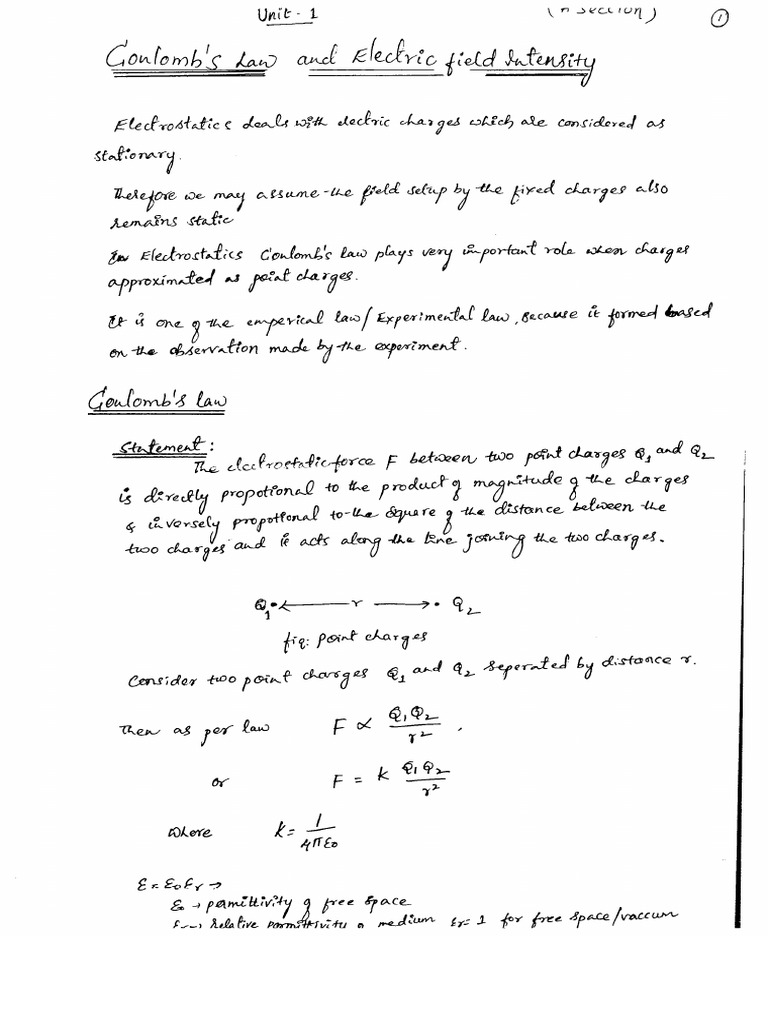 Unit - 1
(n section)
1
Coulomb's Law and Electric field Intensity
Electrostatics deals with electric charges which are considered as
stationary.
Therefore we may assume the field setup by the fixed charges also
remains static
In Electrostatics Coulomb's law plays very important role when charges
approximated as point charges.
It is one of the emperical law/Experimental law, Because it formed based
on the observation made by the experiment.
Coulomb's law
Statement:
The electrostatic force F between two point charges Q₁ and Q₂
is directly propotional to the product of magnitude of the charges
& inversely propotional to the square of the distance between the
two charges and it acts along the line joining the two charges.
Q₁ •←—— r ——→• Q₂
fig: point charges
Consider two point charges Q₁ and Q₂ seperated by distance r.
Then as per law F ∝ Q₁Q₂/r² .
or F = k Q₁Q₂/r²
where k = 1/4πε₀
ε = ε₀εr →
ε₀ → permittivity of free space
εr → relative permittivity of medium εr = 1 for free space/vaccum